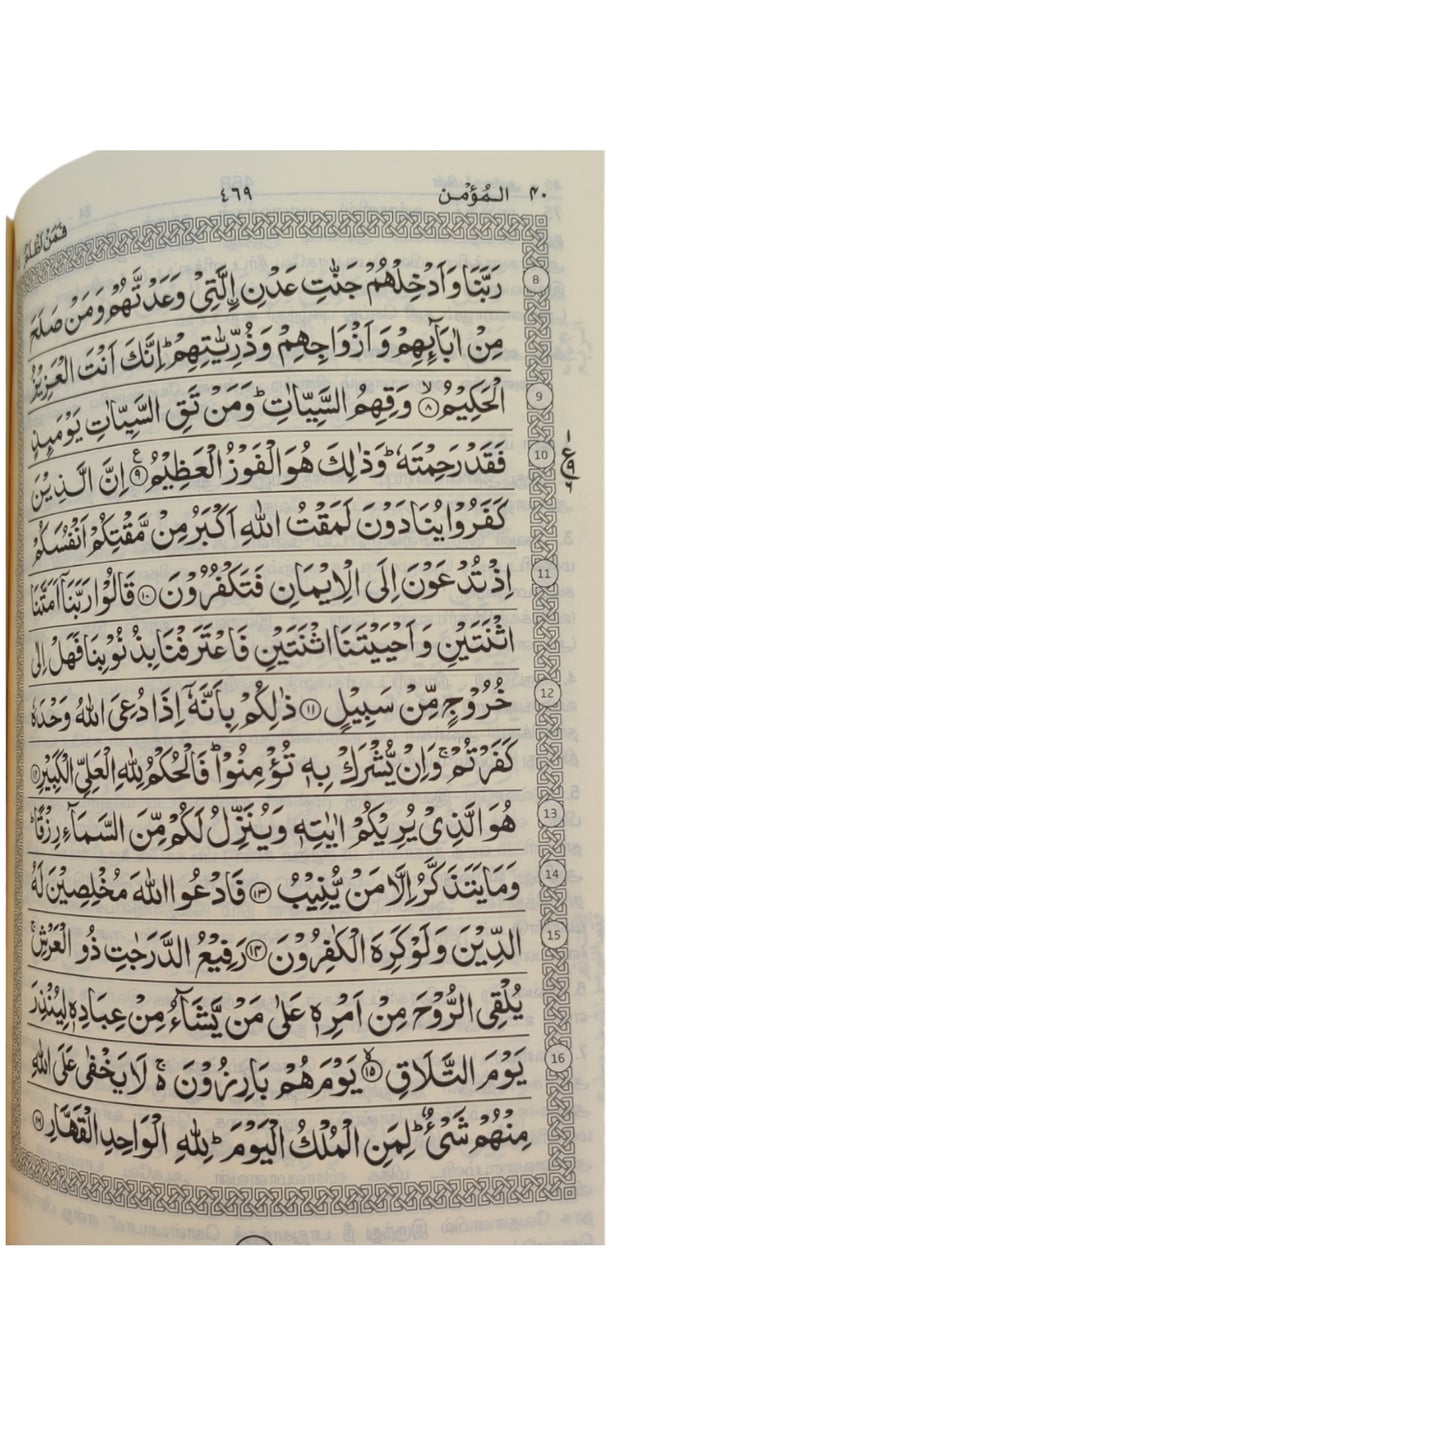 ٤٠ الـمُؤْمن ٤٦٩ فَمَنْ اَظْلَمُ
رَبَّنَا وَاَدْخِلْهُمْ جَنّٰتِ عَدْنِ اِۨلَّتِىْ وَعَدْتَّهُمْ وَمَنْ صَلَحَ
مِنْ اٰبَآئِهِمْ وَ اَزْوَاجِهِمْ وَذُرِّيّٰتِهِمْؕ اِنَّكَ اَنْتَ الْعَزِيْزُ
الْحَكِيْمُۙ ۝٨ وَقِهِمُ السَّيِّاٰتِؕ وَمَنْ تَقِ السَّيِّاٰتِ يَوْمَىِٕذٍ
فَقَدْ رَحِمْتَهٗؕ وَذٰلِكَ هُوَ الْفَوْزُ الْعَظِيْمُ ۝٩ اِنَّ الَّذِيْنَ
كَفَرُوْا يُنَادَوْنَ لَمَقْتُ اللّٰهِ اَكْبَرُ مِنْ مَّقْتِكُمْ اَنْفُسَكُمْ
اِذْ تُدْعَوْنَ اِلَى الْاِيْمَانِ فَتَكْفُرُوْنَ ۝١٠ قَالُوْا رَبَّنَاۤ اَمَتَّنَا
اثْنَتَيْنِ وَ اَحْيَيْتَنَا اثْنَتَيْنِ فَاعْتَرَفْنَا بِذُنُوْبِنَا فَهَلْ اِلٰى
خُرُوْجٍ مِّنْ سَبِيْلٍ ۝١١ ذٰلِكُمْ بِاَنَّهٗۤ اِذَا دُعِىَ اللّٰهُ وَحْدَهٗ
كَفَرْتُمْۚ وَاِنْ يُّشْرَكْ بِهٖ تُؤْمِنُوْاؕ فَالْحُكْمُ لِلّٰهِ الْعَلِىِّ الْكَبِيْرِ ۝١٢
هُوَ الَّذِىْ يُرِيْكُمْ اٰيٰتِهٖ وَيُنَزِّلُ لَكُمْ مِّنَ السَّمَآءِ رِزْقًاؕ
وَمَا يَتَذَكَّرُ اِلَّا مَنْ يُّنِيْبُ ۝١٣ فَادْعُوا اللّٰهَ مُخْلِصِيْنَ لَهُ
الدِّيْنَ وَلَوْ كَرِهَ الْكٰفِرُوْنَ ۝١٤ رَفِيْعُ الدَّرَجٰتِ ذُو الْعَرْشِۚ
يُلْقِى الرُّوْحَ مِنْ اَمْرِهٖ عَلٰى مَنْ يَّشَآءُ مِنْ عِبَادِهٖ لِيُنْذِرَ
يَوْمَ التَّلَاقِۙ ۝١٥ يَوْمَ هُمْ بَارِزُوْنَ ۚ لَا يَخْفٰى عَلَى اللّٰهِ
مِنْهُمْ شَىْءٌؕ لِمَنِ الْمُلْكُ الْيَوْمَؕ لِلّٰهِ الْوَاحِدِ الْقَهَّارِ ۝١٦
8
9
10
ع
٩
11
12
13
14
15
16